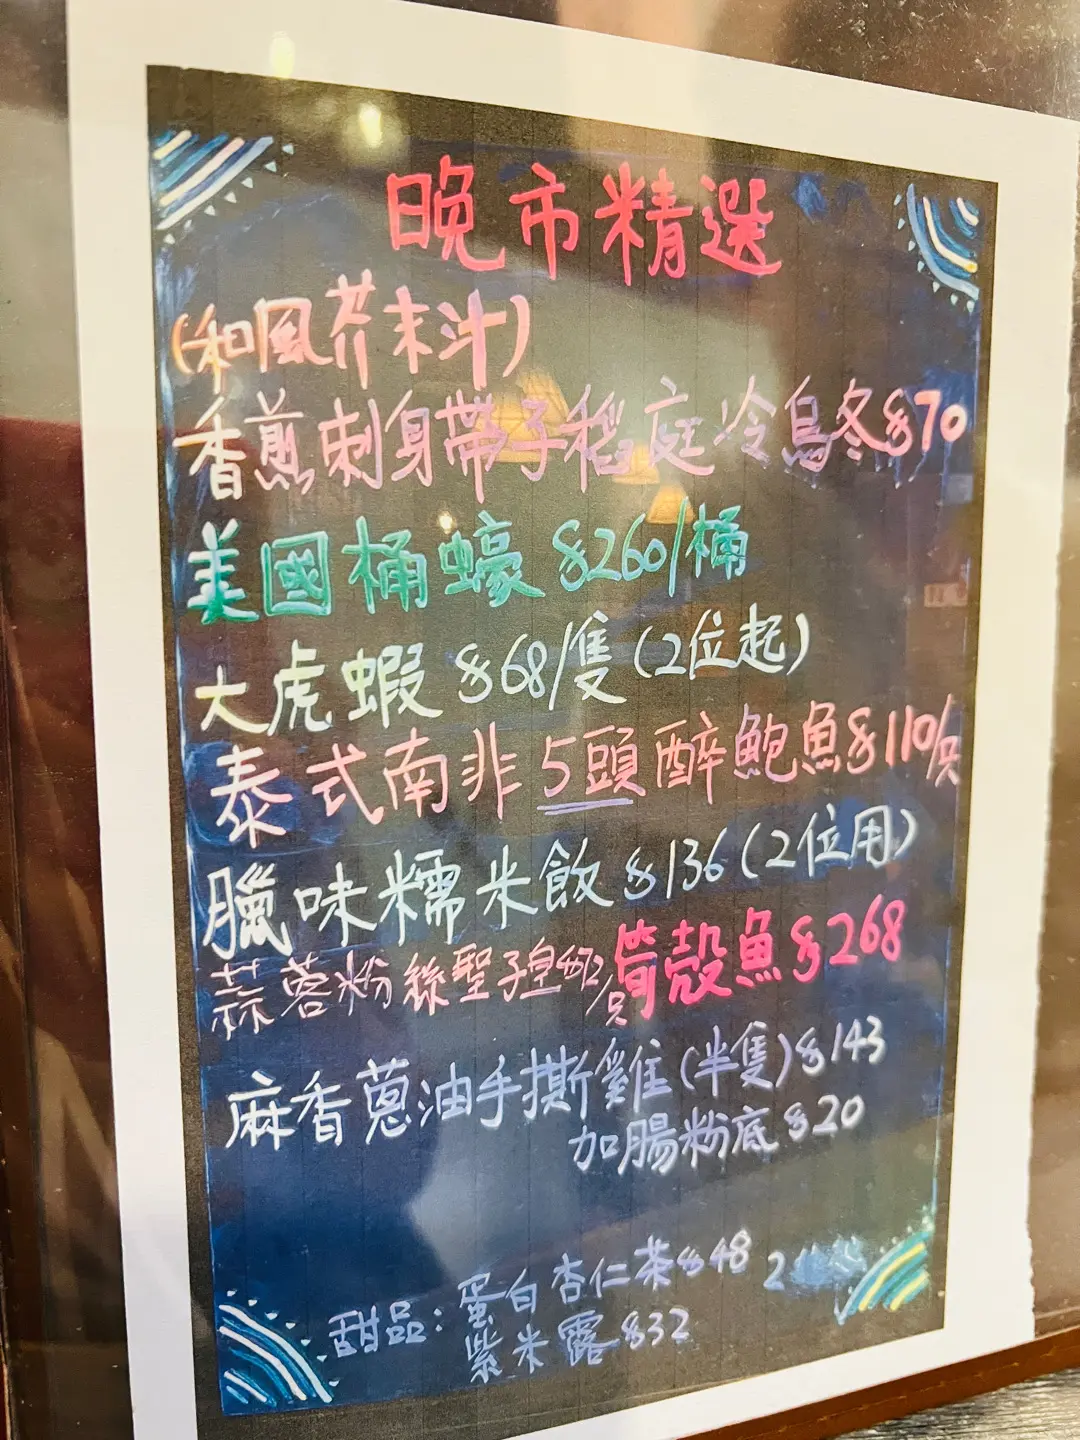 晚市精選
(和風芥末汁)
香煎刺身帶子稻庭冷烏冬$70
美國桶蠔 $260/桶
大虎蝦 $68/隻(2位起)
泰式南非5頭醉鮑魚$110/只
臘味糯米飯 $136(2位用)
蒜蓉粉絲聖子皇$72/只 筍殼魚$268
麻香蔥油手撕雞(半隻)$143
加腸粉底 $20
甜品: 蛋白杏仁茶$48 2
紫米露$32